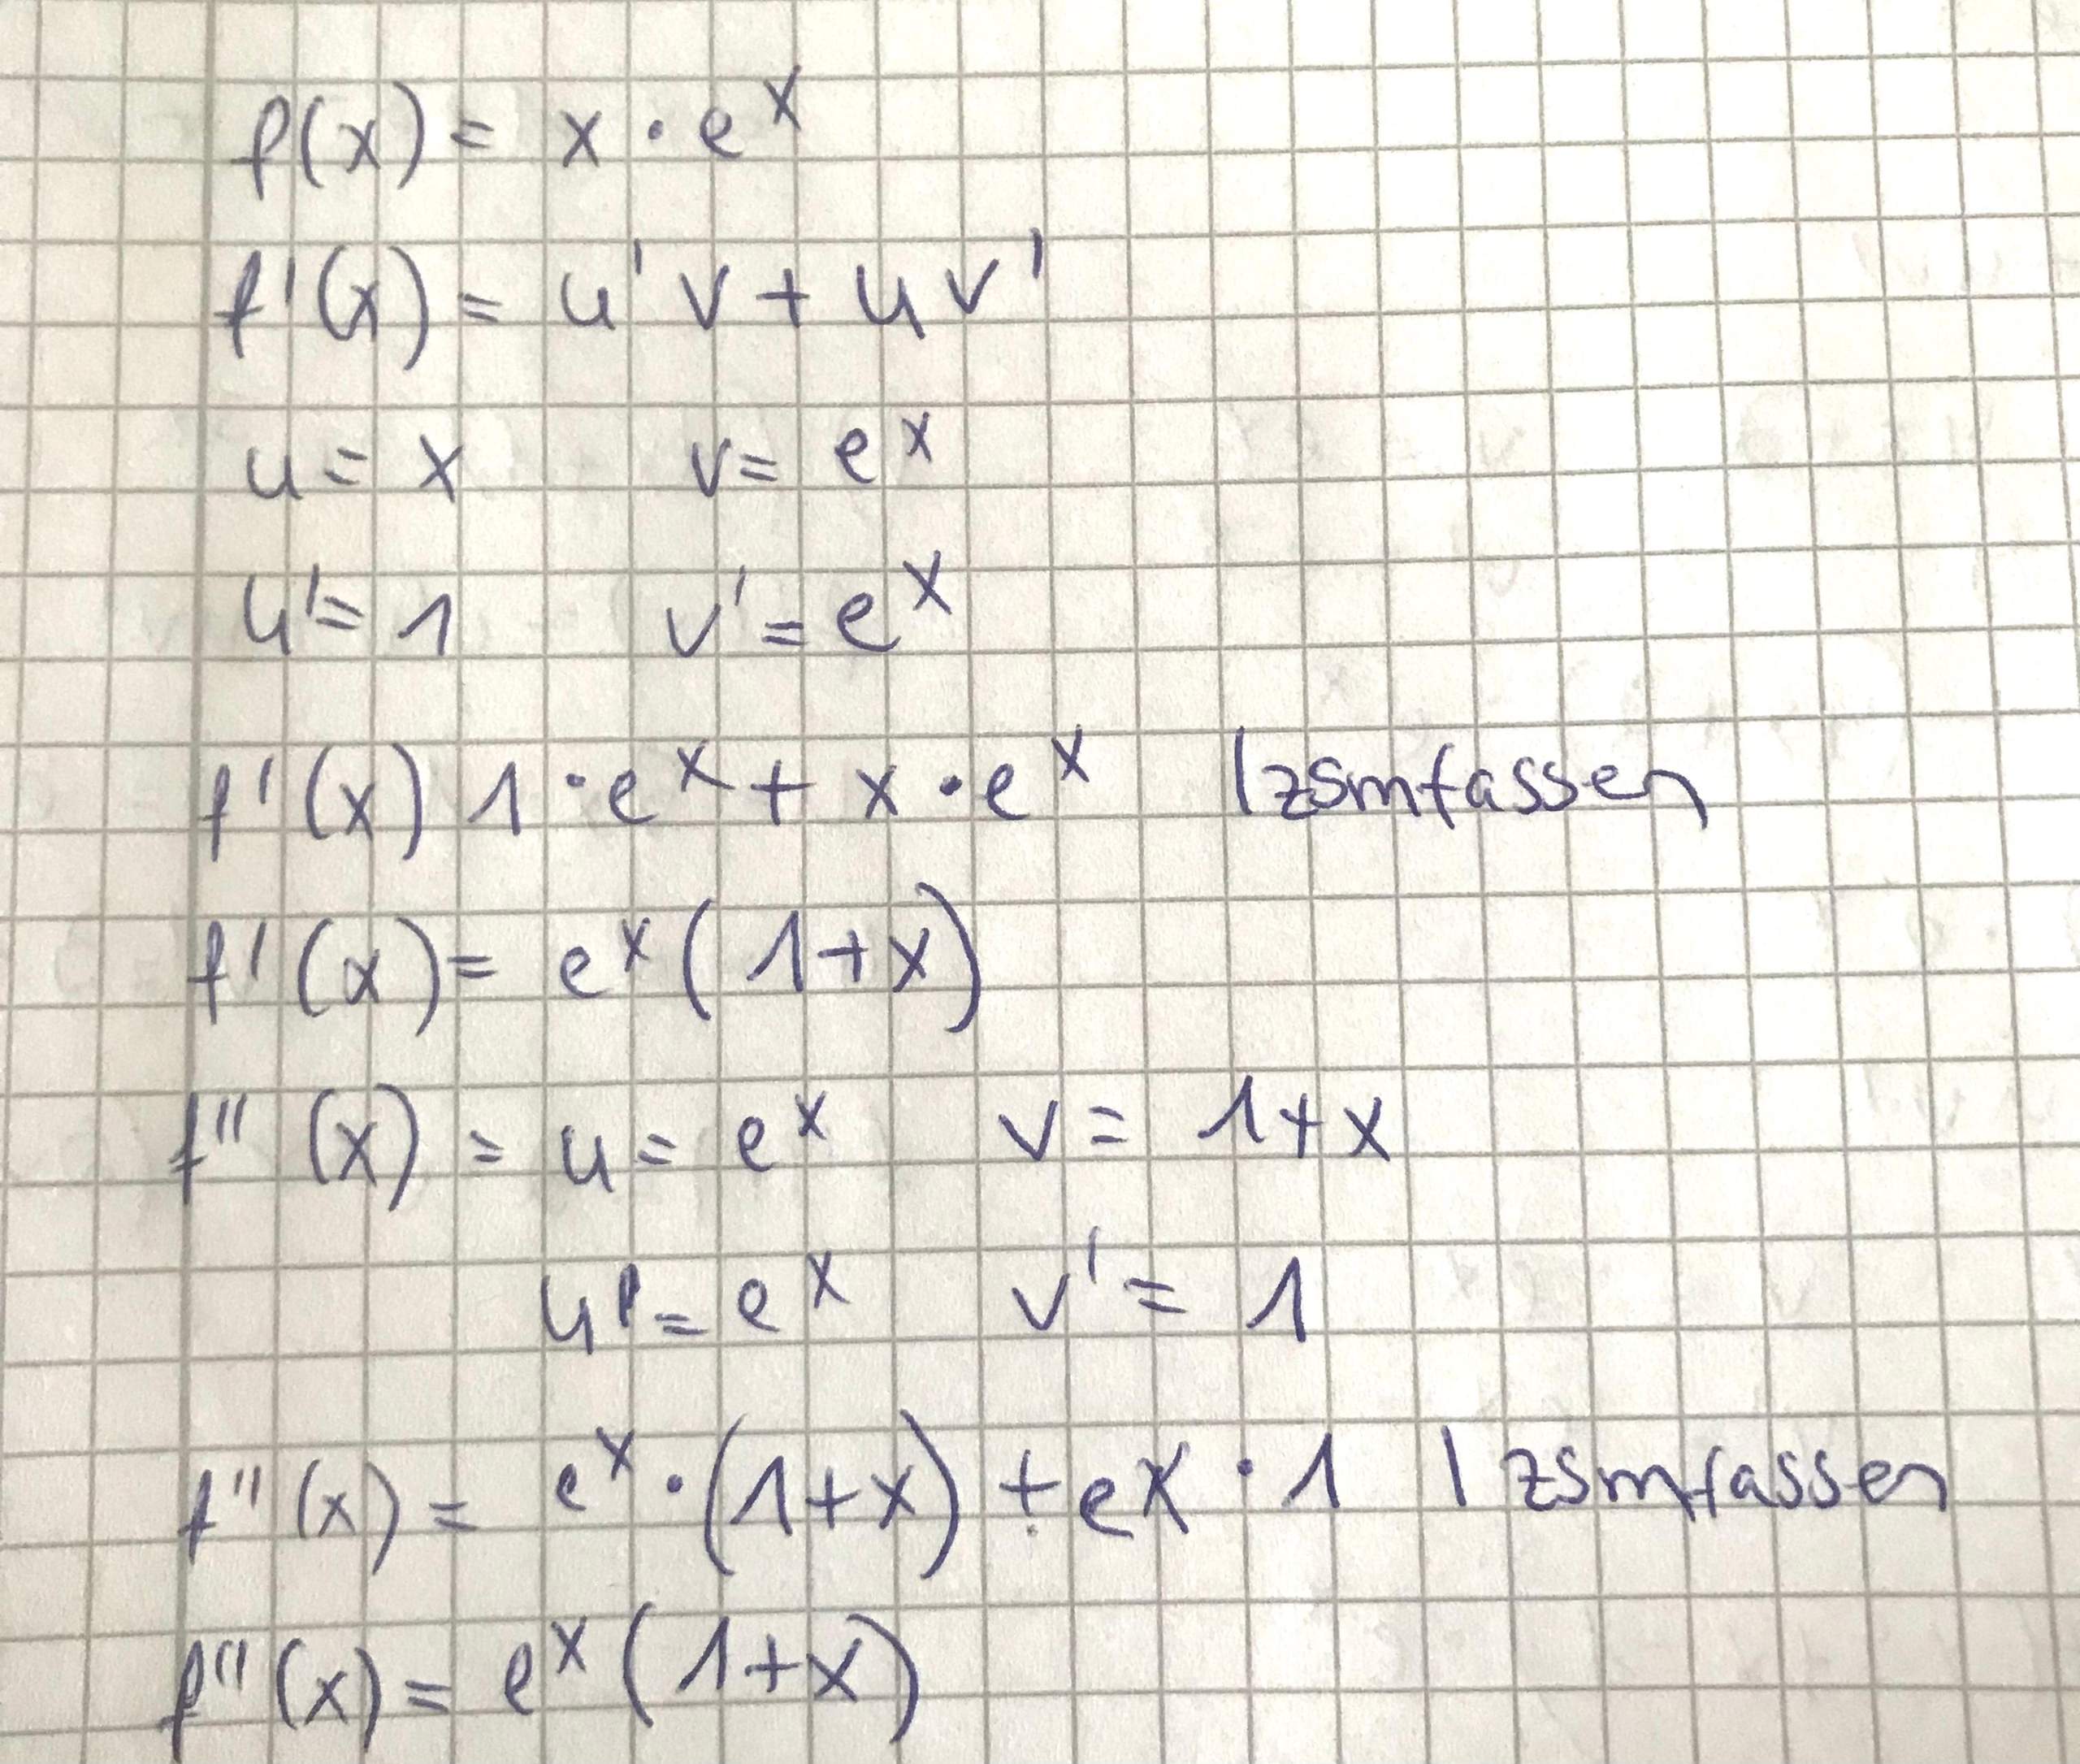 f(x) = x · e^x
f'(x) = u' v + u v'
u = x v = e^x
u' = 1 v' = e^x
f'(x) 1 · e^x + x · e^x | zsmfassen
f'(x) = e^x (1+x)
f''(x) = u = e^x v = 1+x
u' = e^x v' = 1
f''(x) = e^x · (1+x) + e^x · 1 | zsmfassen
f''(x) = e^x (1+x)